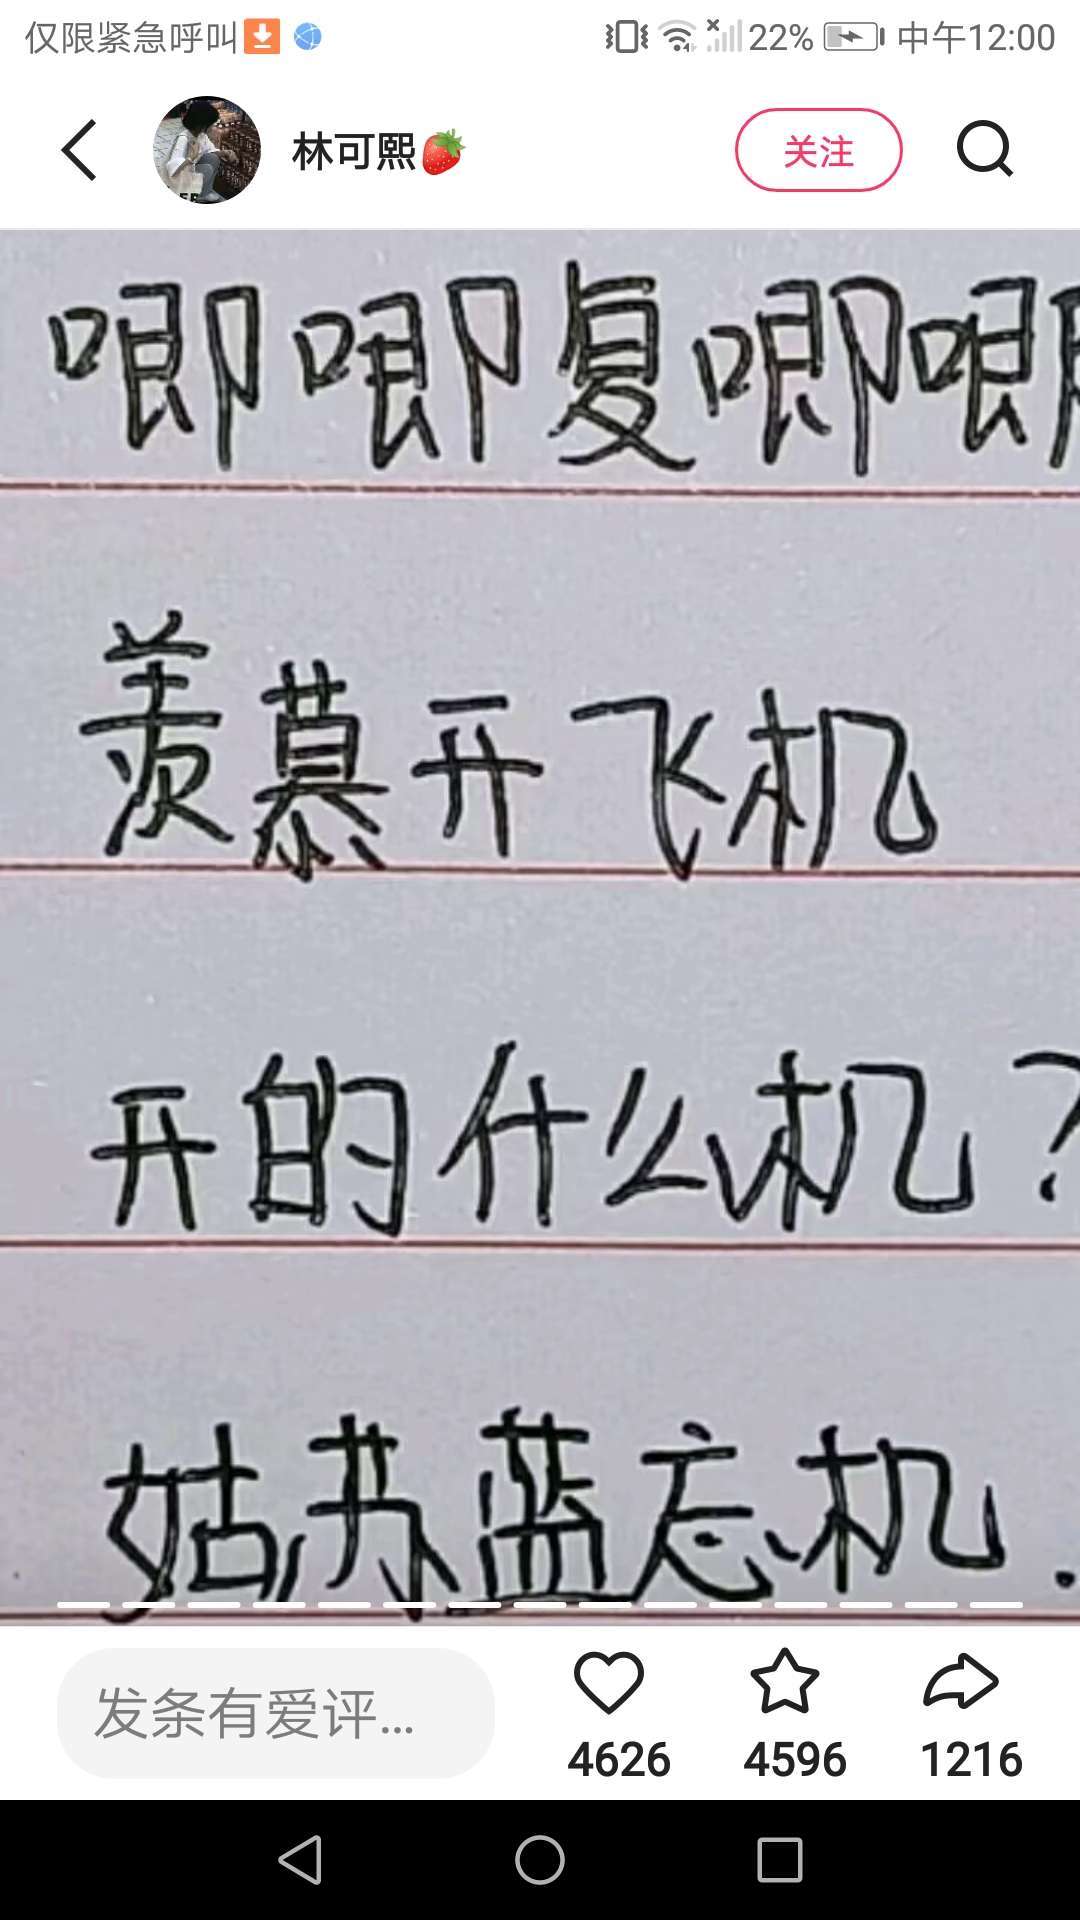 仅限紧急呼叫 22% 中午12:00
林可熙 关注
唧唧复唧唧
羡慕开飞机
开的什么机？
姑苏蓝忘机.
发条有爱评... 4626 4596 1216